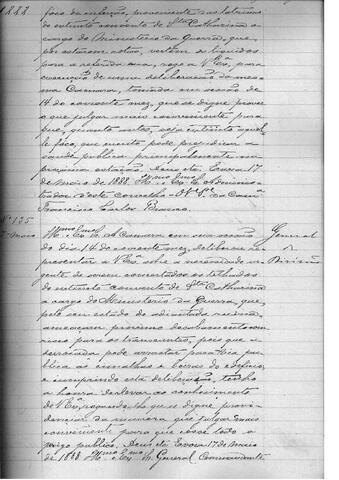 1888
foco de infecção, proveniente das latrinas
do extincto convento de Stª Catharina a
cargo do Ministerio da Guerra, que,
por estarem rotas, vertem os liquidos
para a referida rua, rogo a V.Exª, para
execução de uma deliberação da mes-
ma Camara, tomada em sessão de
14 do corrente mez, que se digne prover
o que julgar mais conveniente para
que, quanto antes, seja extincto aquel-
le foco, que muito pode prejudicar a
saude publica principalmente na
proxima estação. Deus etc. Evora 17
de Maio de 1888. Illmo e Exmo Sr. Adminis-
trador d'este concelho - O V. Pe. da Camª
Francisco Carlos Bravo.
Nº 125
Maio
Illmo e Exmo Sr. A Camara em sua sessão
General
do dia 14 do corrente mez, deliberou re-
presentar a V.Exª sobre a necessidade ur-
Divisão
gente de serem concertados os telhados
do extincto convento de Stª Catharina
a cargo do Ministerio da Guerra, que,
pelo seu estado de adiantada ruina,
ameaçam proximo desabamento com
risco para os transeuntes, pois que a
derrocada pode arrastar para a via pu-
blica as cimalhas e beiraes do edificio,
e cumprindo esta deliberação, tenho
a honra de levar ao conhecimento
de V.Exª, rogando-lhe que se digne provi-
denciar da maneira que julgar mais
conveniente para que cesse todo o
perigo publico. Deus etc. Evora 17 de Maio
de 1888. Illmo e Exmo Sr. General Commandante